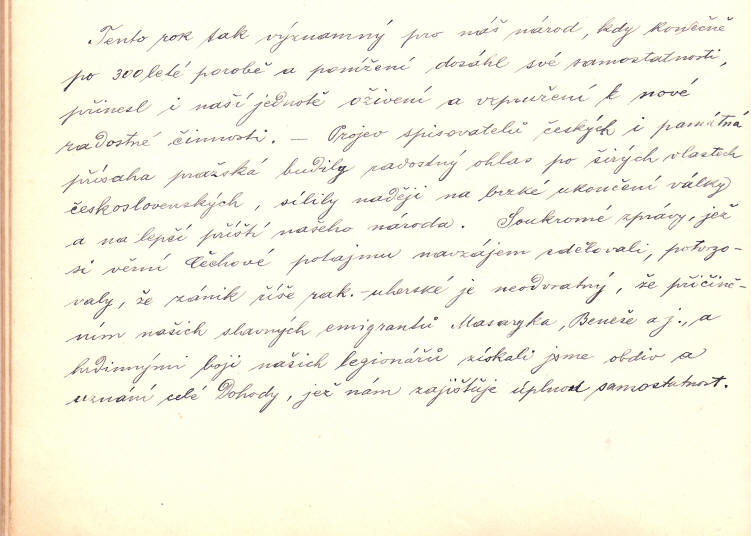 Tento rok tak významný pro náš národ, kdy konečně
po 300 leté porobě a ponížení dosáhl své samostatnosti,
přinesl i naší jednotě oživení a vzpružení k nové
radostné činnosti. – Projev spisovatelů českých i památná
přísaha pražská budily radostný ohlas po širých vlastech
československých, sílily naději na brzké ukončení války
a na lepší příští našeho národa. Soukromé zprávy, jež
si věrní Čechové potajmu navzájem sdělovali, potvrzo-
valy, že zánik říše rak.-uherské je neodvratný, že přičině-
ním našich slavných emigrantů Masaryka, Beneše a j., a
hrdinnými boji našich legionářů získali jsme obdiv a
uznání celé Dohody, jež nám zajišťuje úplnou samostatnost.